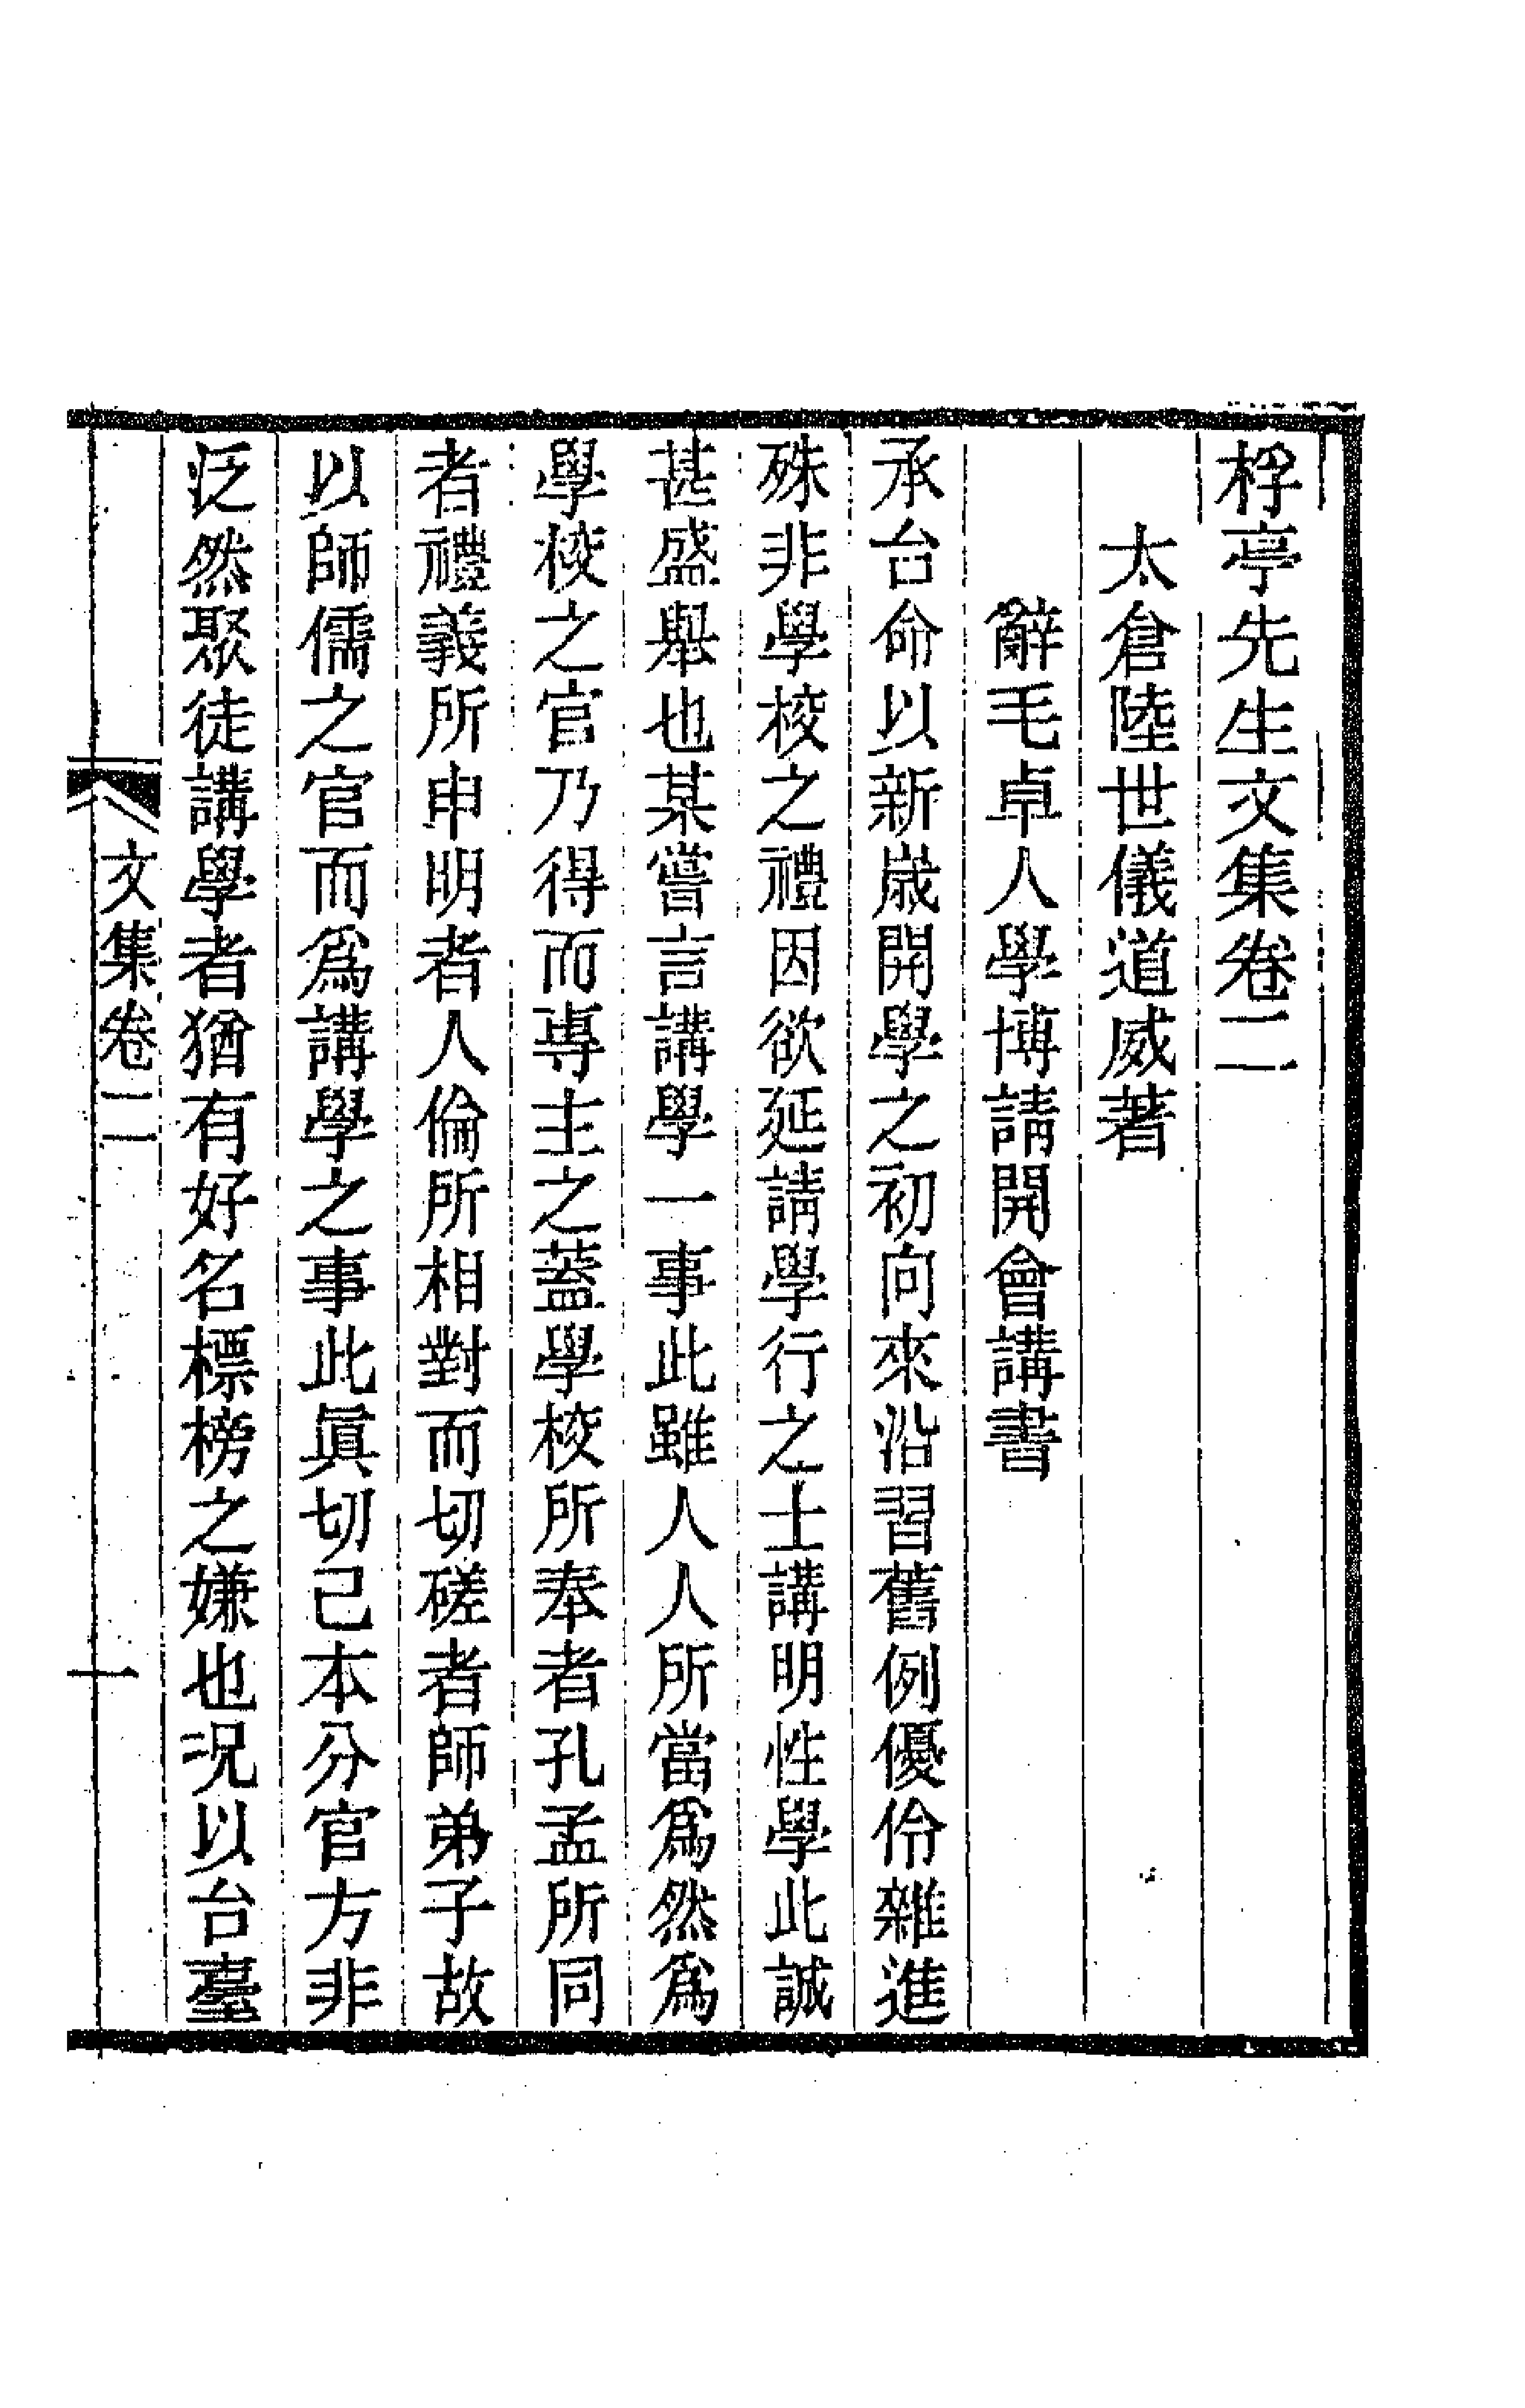 桴亭先生文集卷二
太倉陸世儀道威著
辭毛卓人學博請開會講書
承台命以新歳開學之初向來沿習舊例優伶雜進
殊非學校之禮因欲延請學行之士講明性學此誠
甚盛舉也某嘗言講學一事此雖人人所當爲然爲
學校之官乃得而專主之蓋學校所奉者孔孟所同
者禮義所申明者人倫所相對而切磋者師弟子故
以師儒之官而爲講學之事此眞切己本分官方非
泛然聚徒講學者猶有好名標榜之嫌也况以台臺
文集卷二
一